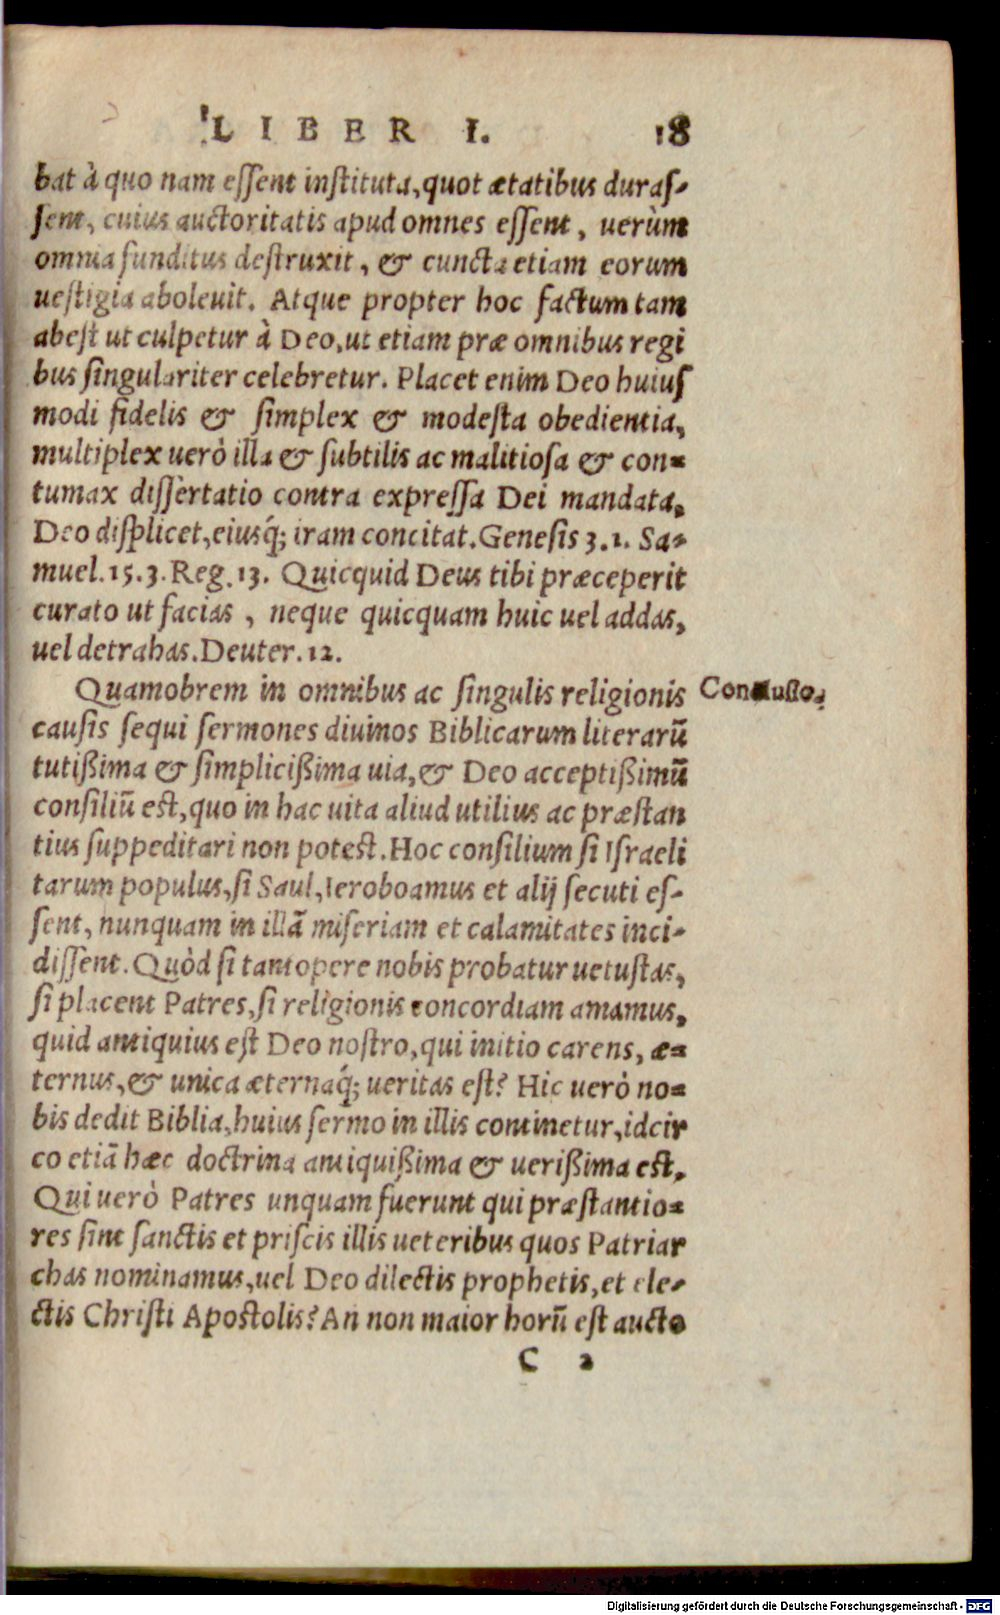 LIBER I. 18
bat à quo nam eſſent inſtituta, quot ætatibus duraſ-
ſent, cuius auctoritatis apud omnes eſſent, uerùm
omnia funditus deſtruxit, & cuncta etiam eorum
ueſtigia aboleuit. Atque propter hoc factum tam
abeſt ut culpetur à Deo, ut etiam præ omnibus regi
bus ſingulariter celebretur. Placet enim Deo huiuſ
modi fidelis & ſimplex & modeſta obedientia,
multiplex uerò illa & ſubtilis ac malitioſa & con=
tumax diſſertatio contra expreſſa Dei mandata,
Deo diſplicet, eiusq́; iram concitat. Geneſis 3. 1. Sa-
muel. 15. 3. Reg. 13. Quicquid Deus tibi præceperit
curato ut facias, neque quicquam huic uel addas,
uel detrahas. Deuter. 12.
Quamobrem in omnibus ac ſingulis religionis
Conclusio.
cauſis ſequi ſermones diuinos Biblicarum literarū
tutißima & ſimplicißima uia, & Deo acceptißimū
conſiliū est, quo in hac uita aliud utilius ac præstan
tius ſuppeditari non potest. Hoc conſilium ſi Iſraeli
tarum populus, ſi Saul, Ieroboamus et alij ſecuti eſ-
ſent, nunquam in illā miſeriam et calamitates inci-
diſſent. Quòd ſi tantopere nobis probatur uetuſtas,
ſi placent Patres, ſi religionis concordiam amamus,
quid antiquius eſt Deo noſtro, qui initio carens, æ=
ternus, & unica æternaq́; ueritas eſt? Hic uerò no=
bis dedit Biblia, huius ſermo in illis continetur, idcir
co etiā hæc doctrina antiquißima & uerißima est.
Qui uerò Patres unquam fuerunt qui præstantio=
res ſint ſanctis et priſcis illis ueteribus quos Patriar
chas nominamus, uel Deo dilectis prophetis, et ele-
ctis Chriſti Apoſtolis? An non maior horū eſt aucto
C 2
Digitalisierung gefördert durch die Deutsche Forschungsgemeinschaft - DFG